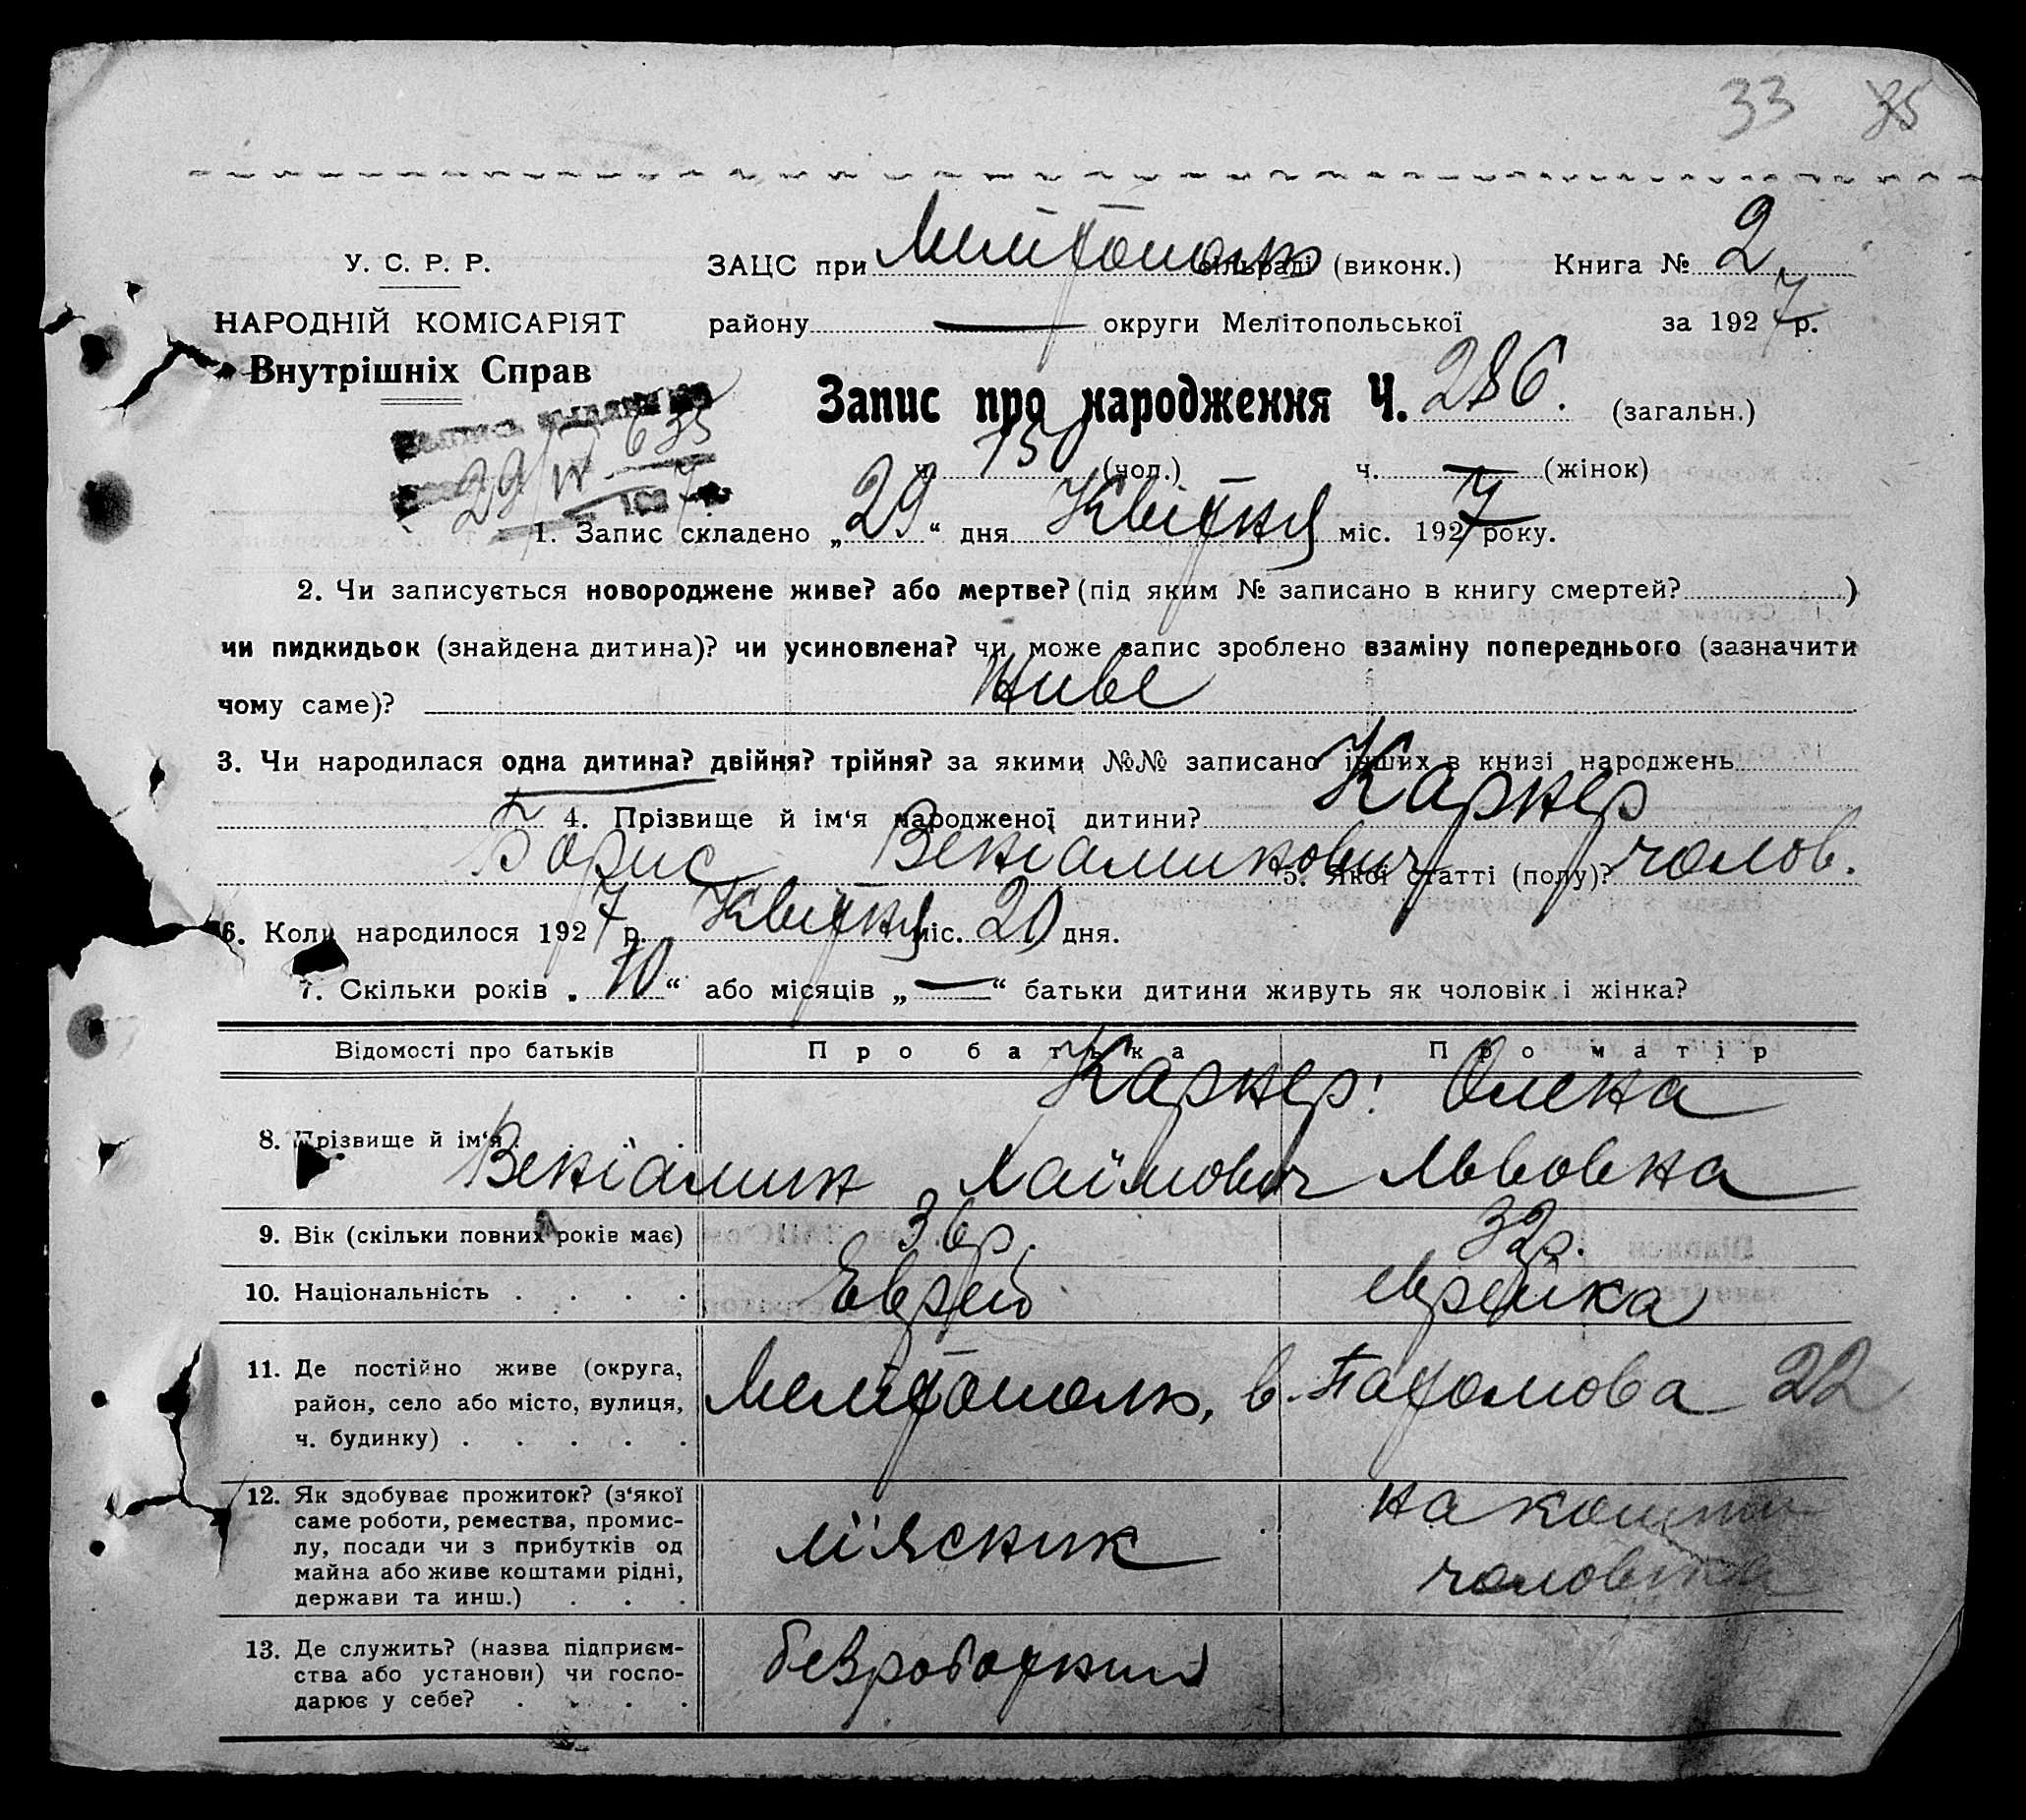 33 35
У. С. Р. Р. ЗАЦС при Мелітополь сільраді (виконк.) Книга № 2
НАРОДНІЙ КОМІСАРІЯТ району — округи Мелітопольської за 1927 р.
Внутрішніх Справ
Запис про народження Ч. 286. (загальн.)
635
ч. 150 (чол.) ч. — (жінок)
29/IV 1927
1. Запис складено „29“ дня Квітня міс. 1927 року.
2. Чи записується новороджене живе? або мертве? (під яким № записано в книгу смертей? )
чи пидкидьок (знайдена дитина)? чи усиновлена? чи може запис зроблено взаміну попереднього (зазначити
чому саме)? Живе
3. Чи народилася одна дитина? двійня? трійня? за якими №№ записано інших в книзі народжень
4. Прізвище й ім‘я народженої дитини? Карнер
Борис Веніамикович 5. Якої статті (полу)? чолов.
6. Коли народилося 1927 р. Квітня міс. 20 дня.
7. Скільки років „10“ або місяців „—“ батьки дитини живуть як чоловік і жінка?
Відомості про батьків Про батька Про матір
Карнер: Олена
8. Прізвище й ім‘я . . .
Веніамин Хаїмович Львовна
9. Вік (скільки повних років має) 36 р. 32 р.
10. Національність . . . . Еврей еврейка
11. Де постійно живе (округа,
район, село або місто, вулиця, Мелітополь, в. 22
ч. будинку) . . . . .
12. Як здобуває прожиток? (з‘якої на кошти
саме роботи, ремества, промис-
лу, посади чи з прибутків од м'ясник
майна або живе коштами рідні, чоловіка
держави та инш.) . . .
13. Де служить? (назва підприєм-
ства або установи) чи госпо- безроботний
дарює у себе? . . . .